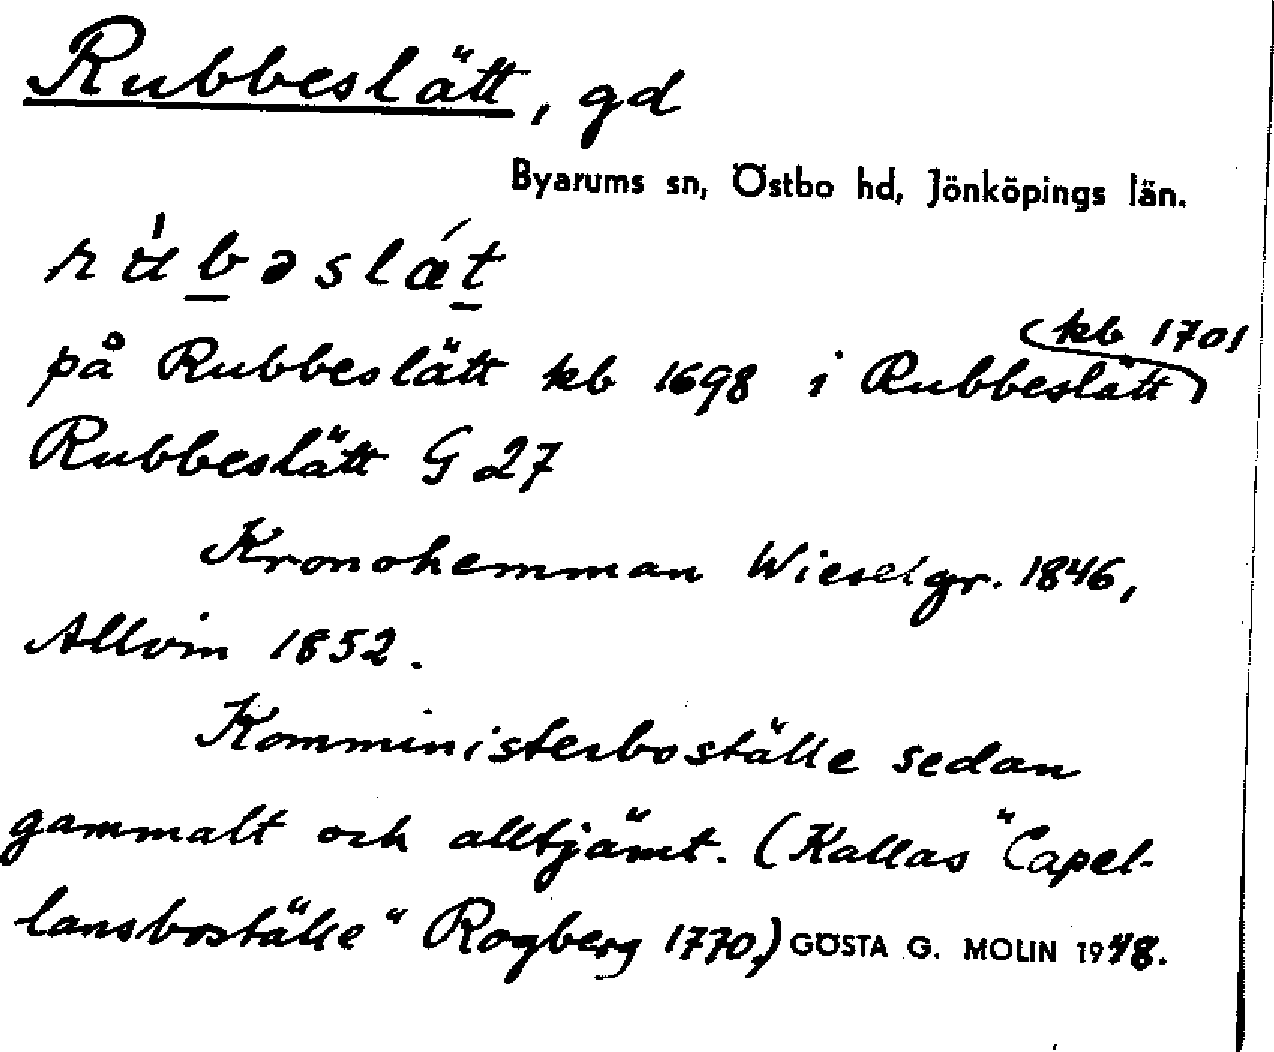 Rubbeslätt, gd
Byarums sn, Östbo hd, Jönköpings län.
på Rubbeslätt kb 1698 i Rubbeslätt (kb 1701)
Rubbeslätt G 27
Kronohemman Wieselgr. 1846,
Allvin 1852.
Komministerboställe sedan
gammalt och alltjämt. (Kallas "Capel-
lansboställe" Rogberg 1770,) GÖSTA G. MOLIN 1948.